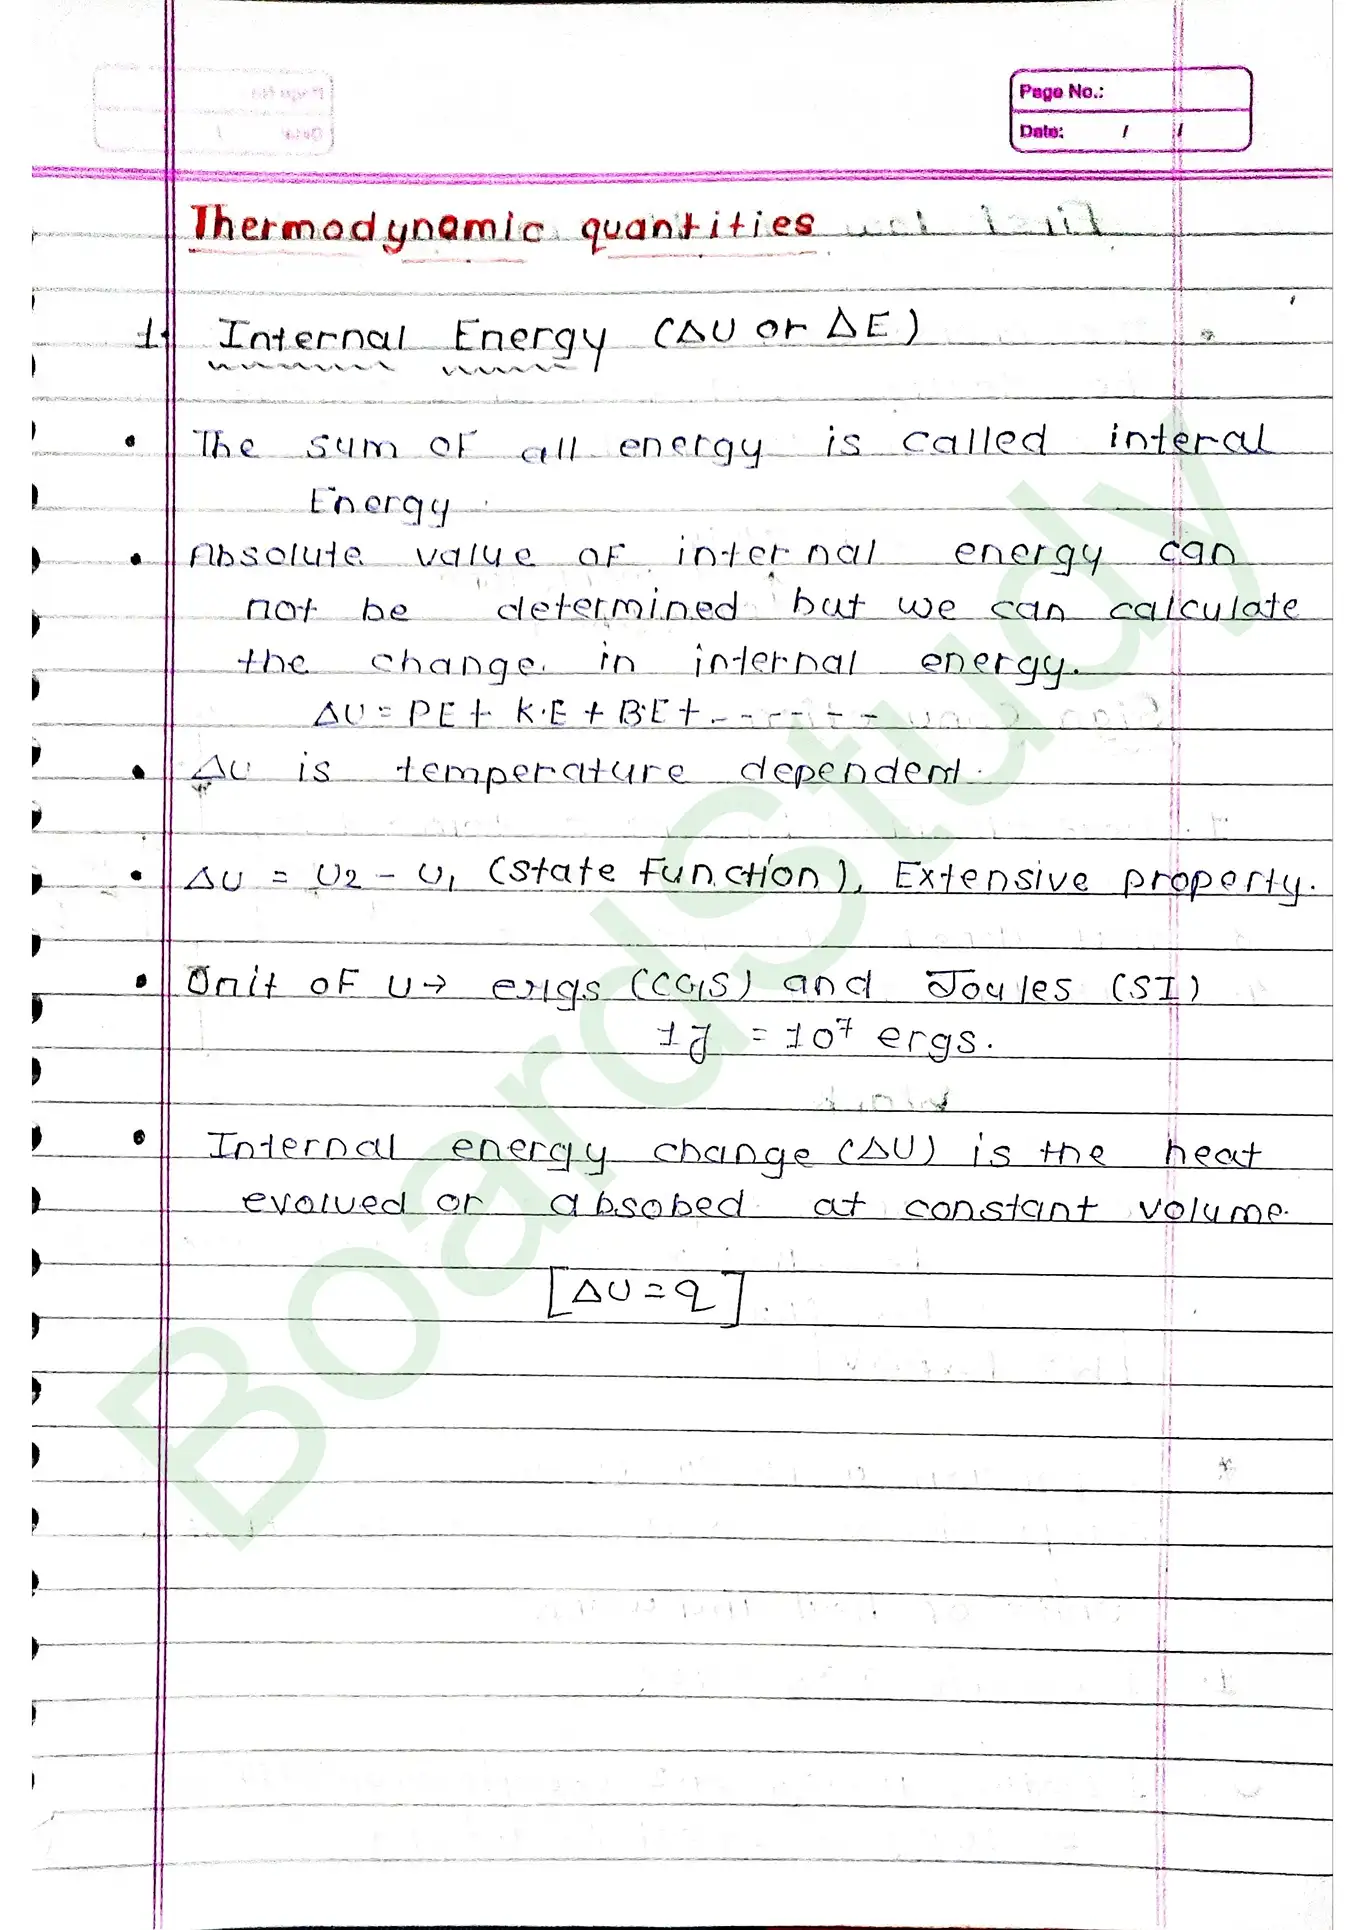 Page No.:
Date: / /
Thermodynamic quantities
1. Internal Energy (ΔU or ΔE)
• The sum of all energy is called interal
Energy.
• Absolute value of internal energy can
not be determined but we can calculate
the change in internal energy.
ΔU = PE + K.E + B.E + - - - - - -
• ΔU is temperature dependent.
• ΔU = U2 - U1 (State function), Extensive property.
• Unit of U → ergs (CGS) and Joules (SI)
1J = 10⁷ ergs.
• Internal energy change (ΔU) is the heat
evolved or absobed at constant volume.
[ΔU = q]
BoardStudy